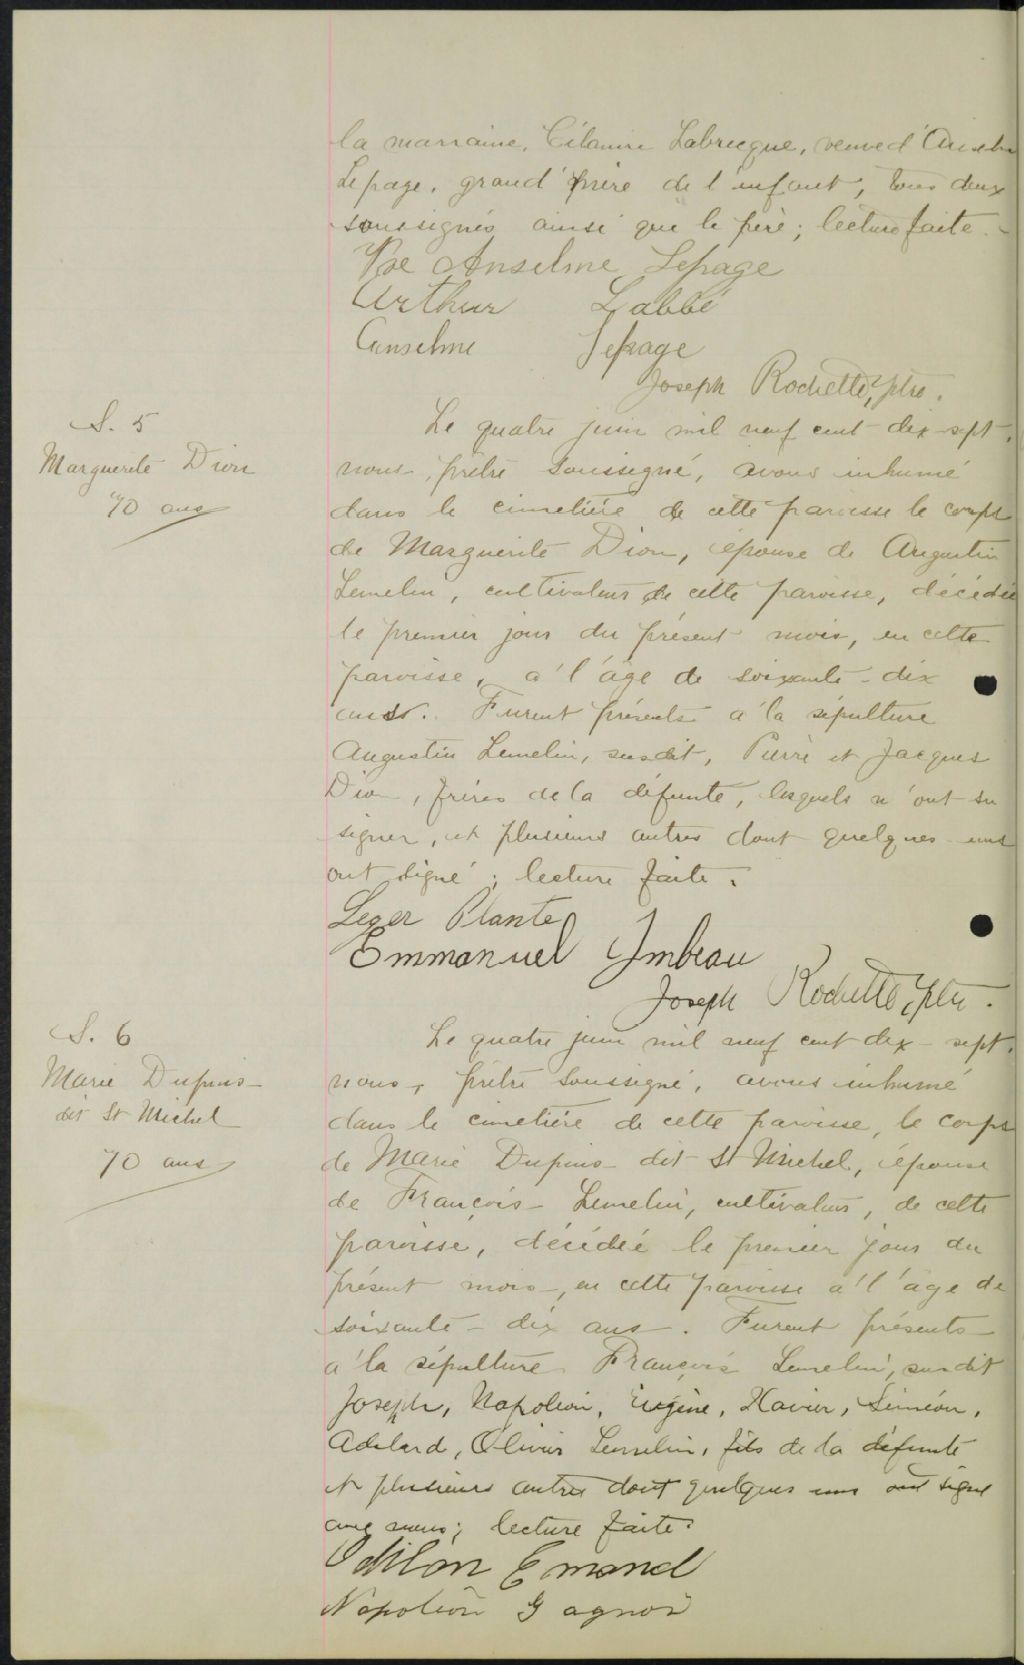 la marraine, Labrecque, veuve d'Anselm
Lepage, grand'mère de l'enfant, tous deux
soussignés ainsi que le père; lecture faite.
Vve Anselme Lepage
Arthur Labbé
Anselme Lepage
Joseph Rochette, ptre.
S. 5
Marguerite Dion
70 ans
Le quatre juin mil neuf cent dix-sept,
nous, prêtre soussigné, avons inhumé
dans le cimetière de cette paroisse le corps
de Marguerite Dion, épouse de Augustin
Lemelin, cultivateur de cette paroisse, décédée
le premier jour du présent mois, en cette
paroisse, à l'âge de soixante-dix
ans. Furent présents à la sépulture
Augustin Lemelin, susdit, Pierre et Jacques
Dion, frères de la défunte, lesquels n'ont su
signer, et plusieurs autres dont quelques-uns
ont signé; lecture faite.
Leger Plante
Emmanuel Imbeau
Joseph Rochette, ptre.
S. 6
Marie Dupuis
dit St Michel
70 ans
Le quatre juin mil neuf cent dix-sept,
nous, prêtre soussigné, avons inhumé
dans le cimetière de cette paroisse, le corps
de Marie Dupuis dit St Michel, épouse
de François Lemelin, cultivateur, de cette
paroisse, décédée le premier jour du
présent mois, en cette paroisse à l'âge de
soixante-dix ans. Furent présents
à la sépulture François Lemelin, susdit
Joseph, Napoléon, Eugène, Xavier, Siméon,
Adelard, Olivier Lemelin, fils de la défunte
et plusieurs autres dont quelques uns ont signé
avec nous; lecture faite.
Odilon Emond
Napoléon Gagnon